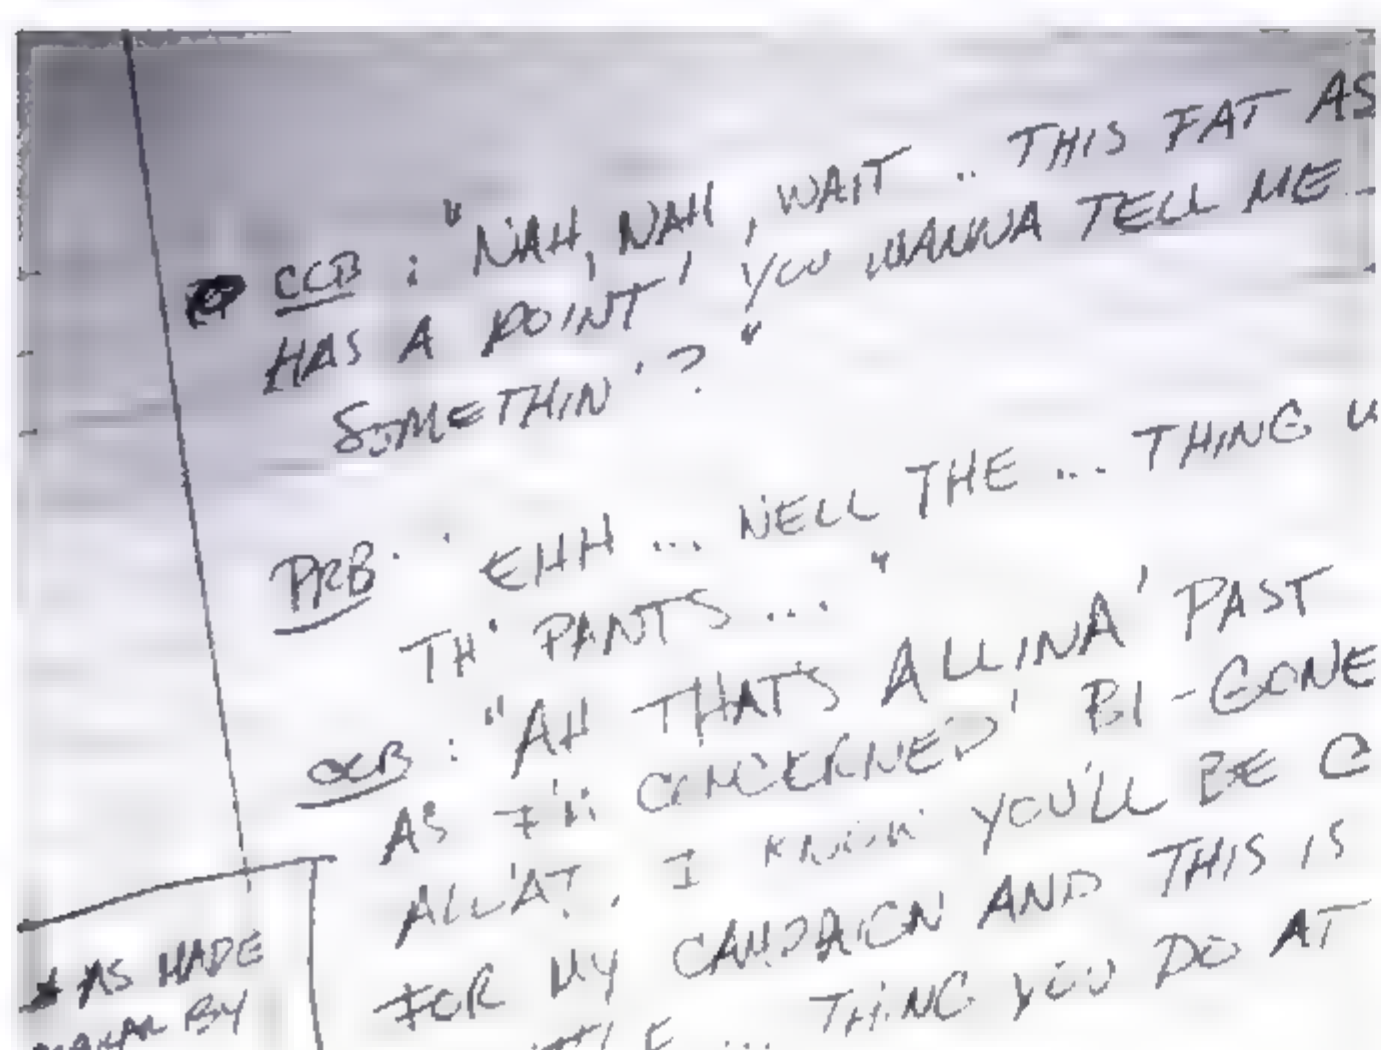 CCB : "NAH, NAH, WAIT .. THIS FAT AS
HAS A POINT, YOU WANNA TELL ME
SOMETHIN'?"
PRB. EHH ... NELL THE ... THING
TH' PANTS ..."
CCB : "AH THAT'S ALLINA' PAST
AS I'M CONCERNED, BI-GONE
ALL'AT, I KNOW YOU'LL BE C
FOR MY CAMPAIGN AND THIS IS
... THING YOU DO AT
* AS MADE
BY